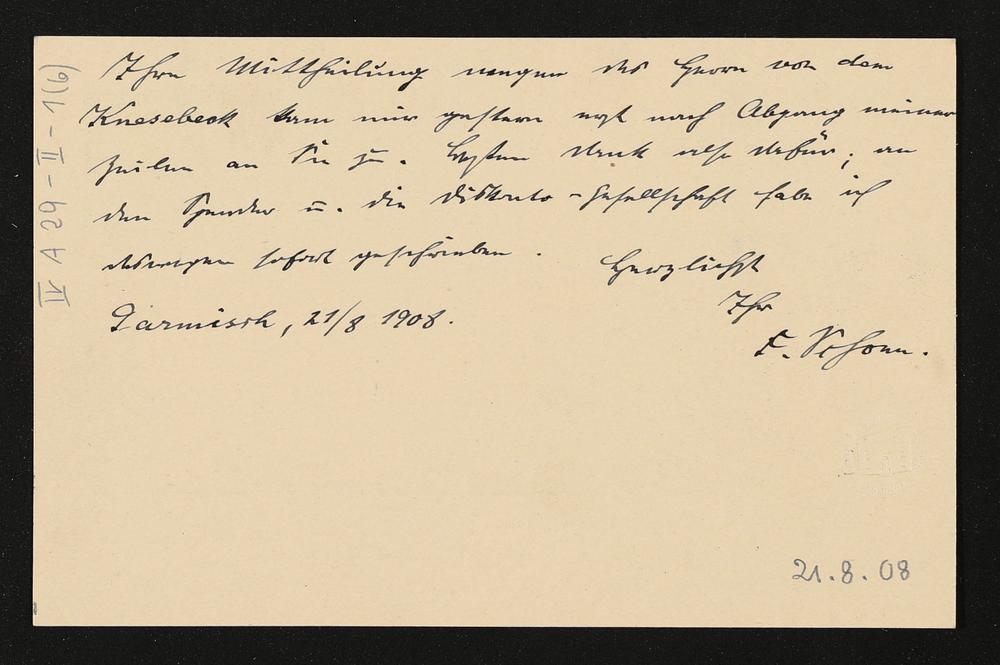 Ihre Mittheilung wegen des Herrn von dem
Knesebeck kam mir gestern erst nach Abgang meiner
Zeilen an Sie zu. Besten Dank also dafür; an
den Spender u. die Diskonto-Gesellschaft habe ich
deswegen sofort geschrieben. Herzlichst
Ihr
Garmisch, 21/8 1908.
F. Schöne.
IV A 29 - II - 1(6)
21.8.08